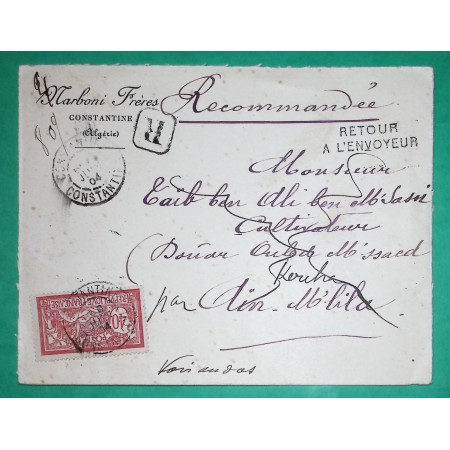 Narboni Frères
CONSTANTINE
(Algérie)
800
Recommandée
R
RETOUR
A L'ENVOYEUR
CONSTANTINE
04
Monsieur
Taïb ben Ali ben M'Sassi
Cultivateur
Douar Ouled M'ssaed
par Aïn-M'lila
REPUBLIQUE FRANÇAISE
40
Voir au dos